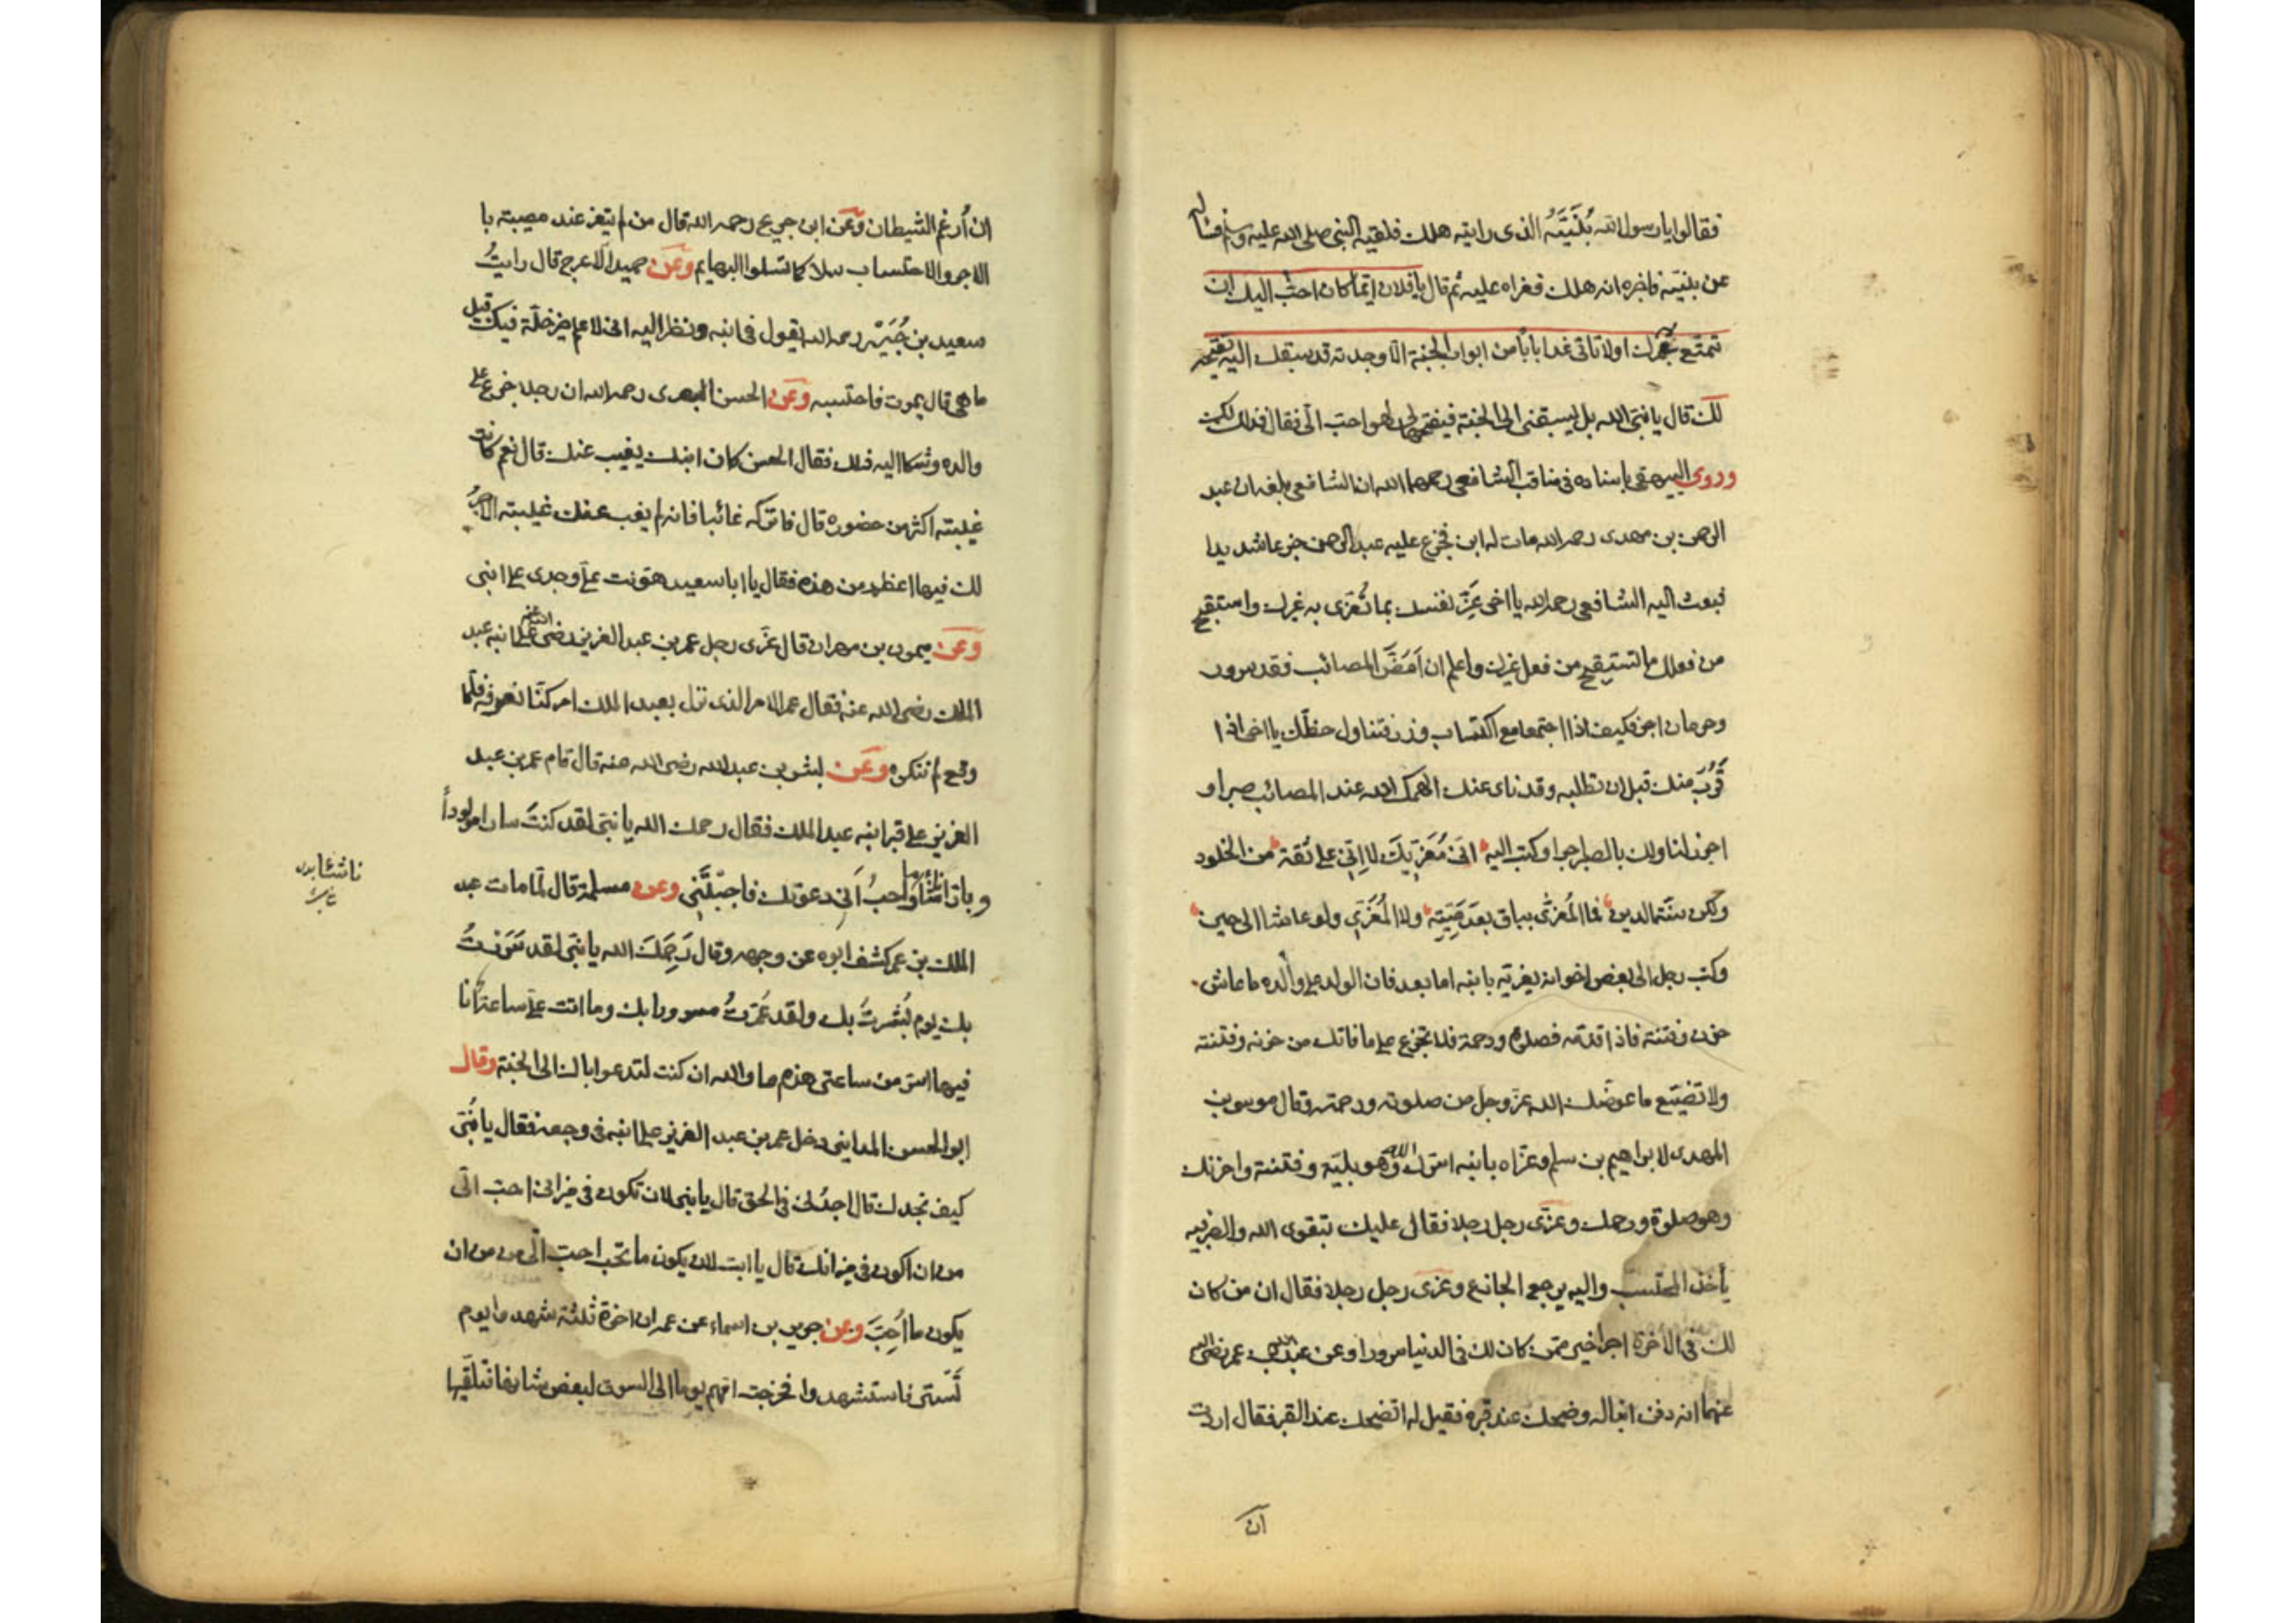 فقالوا يا رسول الله بُنَيَّهُ الذى رايته هلك فلقيه النبى صلى الله عليه وسلم فساله
عن بنيّه فاخبره انه هلك فعزاه عليه ثم قال يا فلان ايّما كان احبّ اليك ان
تمتع به عمرك او لا تاتى غدا بابا من ابواب الجنة الا وجدته قد سبقك اليه يفتحه
لك قال يا نبىّ الله بل ليسبقنى الى الجنة فيفتحها لى لهو احب الىّ فقال فذلك لك
وروى البيهقى باسناده فى مناقب الشافعى رحمهما الله ان الشافعى بلغه ان عبد
الرحمن بن مهدى رحمه الله مات له ابن فجزع عليه عبد الرحمن جزعا شديدا
فبعث اليه الشافعى رحمه الله يا اخى عزّ نفسك بما تُعَزى به غيرك واستقبح
من فعلك ما تستقبح من فعل غيرك واعلم ان اَمَضَّ المصائب فقد سرور
وحرمان اجر فكيف اذا اجتمعا مع اكتساب وزر فتناول حظّك يا اخى اذا
قَرُبَ منك قبل ان تطلبه وقد ناى عنك الهمك الله عند المصائب صبرا و
احرز لنا ولك بالصبر اجرا وكتب اليه انى مُعَزِّيكَ لا اِنّى على ثقة من الخلود
ولكن سنّة الدين فما المُعزَّى بباق بعد مَيّتِه ولا المُعَزِّى ولو عاشا الى حين
وكتب رجل الى بعض اخوانه يعزيه بابنه اما بعد فان الولد على والده ما عاش
حزن وفتنة فاذا قدّمه فصلوة ورحمة فلا تجزع على ما فاتك من حزنه وفتنته
ولا تضيّع ما عوضك الله عزّ وجل من صلوته ورحمته وقال موسى بن
المهدى لابراهيم بن سلم وعزّاه بابنه اسرّك الله وهو بليّة وفتنة واحزنك
وهو صلوة ورحمة وعزّى رجل رجلا فقال عليك بتقوى الله والصبر به
يأخذ المحتسب واليه يرجع الجازع وعزى رجل رجلا فقال ان من كان
لك فى الاخرة اجرا خير ممن كان لك فى الدنيا سرورا وعن عبد الله بن عمر رضى الله
عنهما انه دفن ابنا له وضحك عند قبره فقيل له اتضحك عند القبر فقال اردت
ان
ان أُرغم الشيطان وعن ابن جريج رحمه الله قال من لم يتعز عند مصيبته با
لاجر والاحتساب سلا كما تسلوا البهايم وعن حميد الاعرج قال رايتُ
سعيد بن جُبَيْر رحمه الله يقول فى ابنه ونظر اليه انى لاعلم خير خلّة فيك قيل
ما هى قال يموت فاحتسبه وعن الحسن البصرى رحمه الله ان رجلا جزع على
والده وشكا اليه ذلك فقال الحسن كان ابنك يغيب عنك قال نعم كانت
غيبته اكثر من حضوره قال فاتركه غائبا فانه لم يغب عنك غيبته الاجرُ
لك فيها اعظم من هذه فقال يا ابا سعيد هوّنت علىّ وجدى على ابنى
وعن ميمون بن مهران قال عزّى رجل عمر بن عبد العزيز رضى الله عنه على ابنه عبد
الملك رضى الله عنه فقال عمر الامر الذى نزل بعبد الملك امر كنّا نعرفه فلما
وقع لم ننكره وعن بشر بن عبد الله رضى الله عنه قال قام عمر بن عبد
العزيز على قبر ابنه عبد الملك فقال رحمك الله يا بنى لقد كنتَ سارا مولوداً
وبارا ناشئا وما احبُّ انى دعوتك فاجبتَنى وعن مسلمة قال لمّا مات عبد
ناشئا
الملك بن عمر كشف ابوه عن وجهه وقال رَحِمَكَ الله يا بنى لقد سُرِرتُ
بك يوم بُشّرتُ بك ولقد عُمّرتُ مسرورا بك وما اتت علىّ ساعة انا
فيها اسرّ من ساعتى هذه اما والله ان كنت لتدعوا اباك الى الجنة وقال
ابو الحسن المداينى دخل عمر بن عبد العزيز على ابنه فى وجعه فقال يا بُنَىّ
كيف تجدك قال اجدُنى فى الحق قال يا بنى لان تكون فى ميزانى احب الىّ
من ان اكون فى ميزانك قال يا ابت لان يكون ما تحب احب الىّ من ان
يكون ما اُحِبّ وعن جويرية بن اسماء عن عمه ان اخوة ثلثة شهدوا يوم
تُستر فاستشهدوا فخرجت امهم يوما الى السوق لبعض شانها فتلقيها